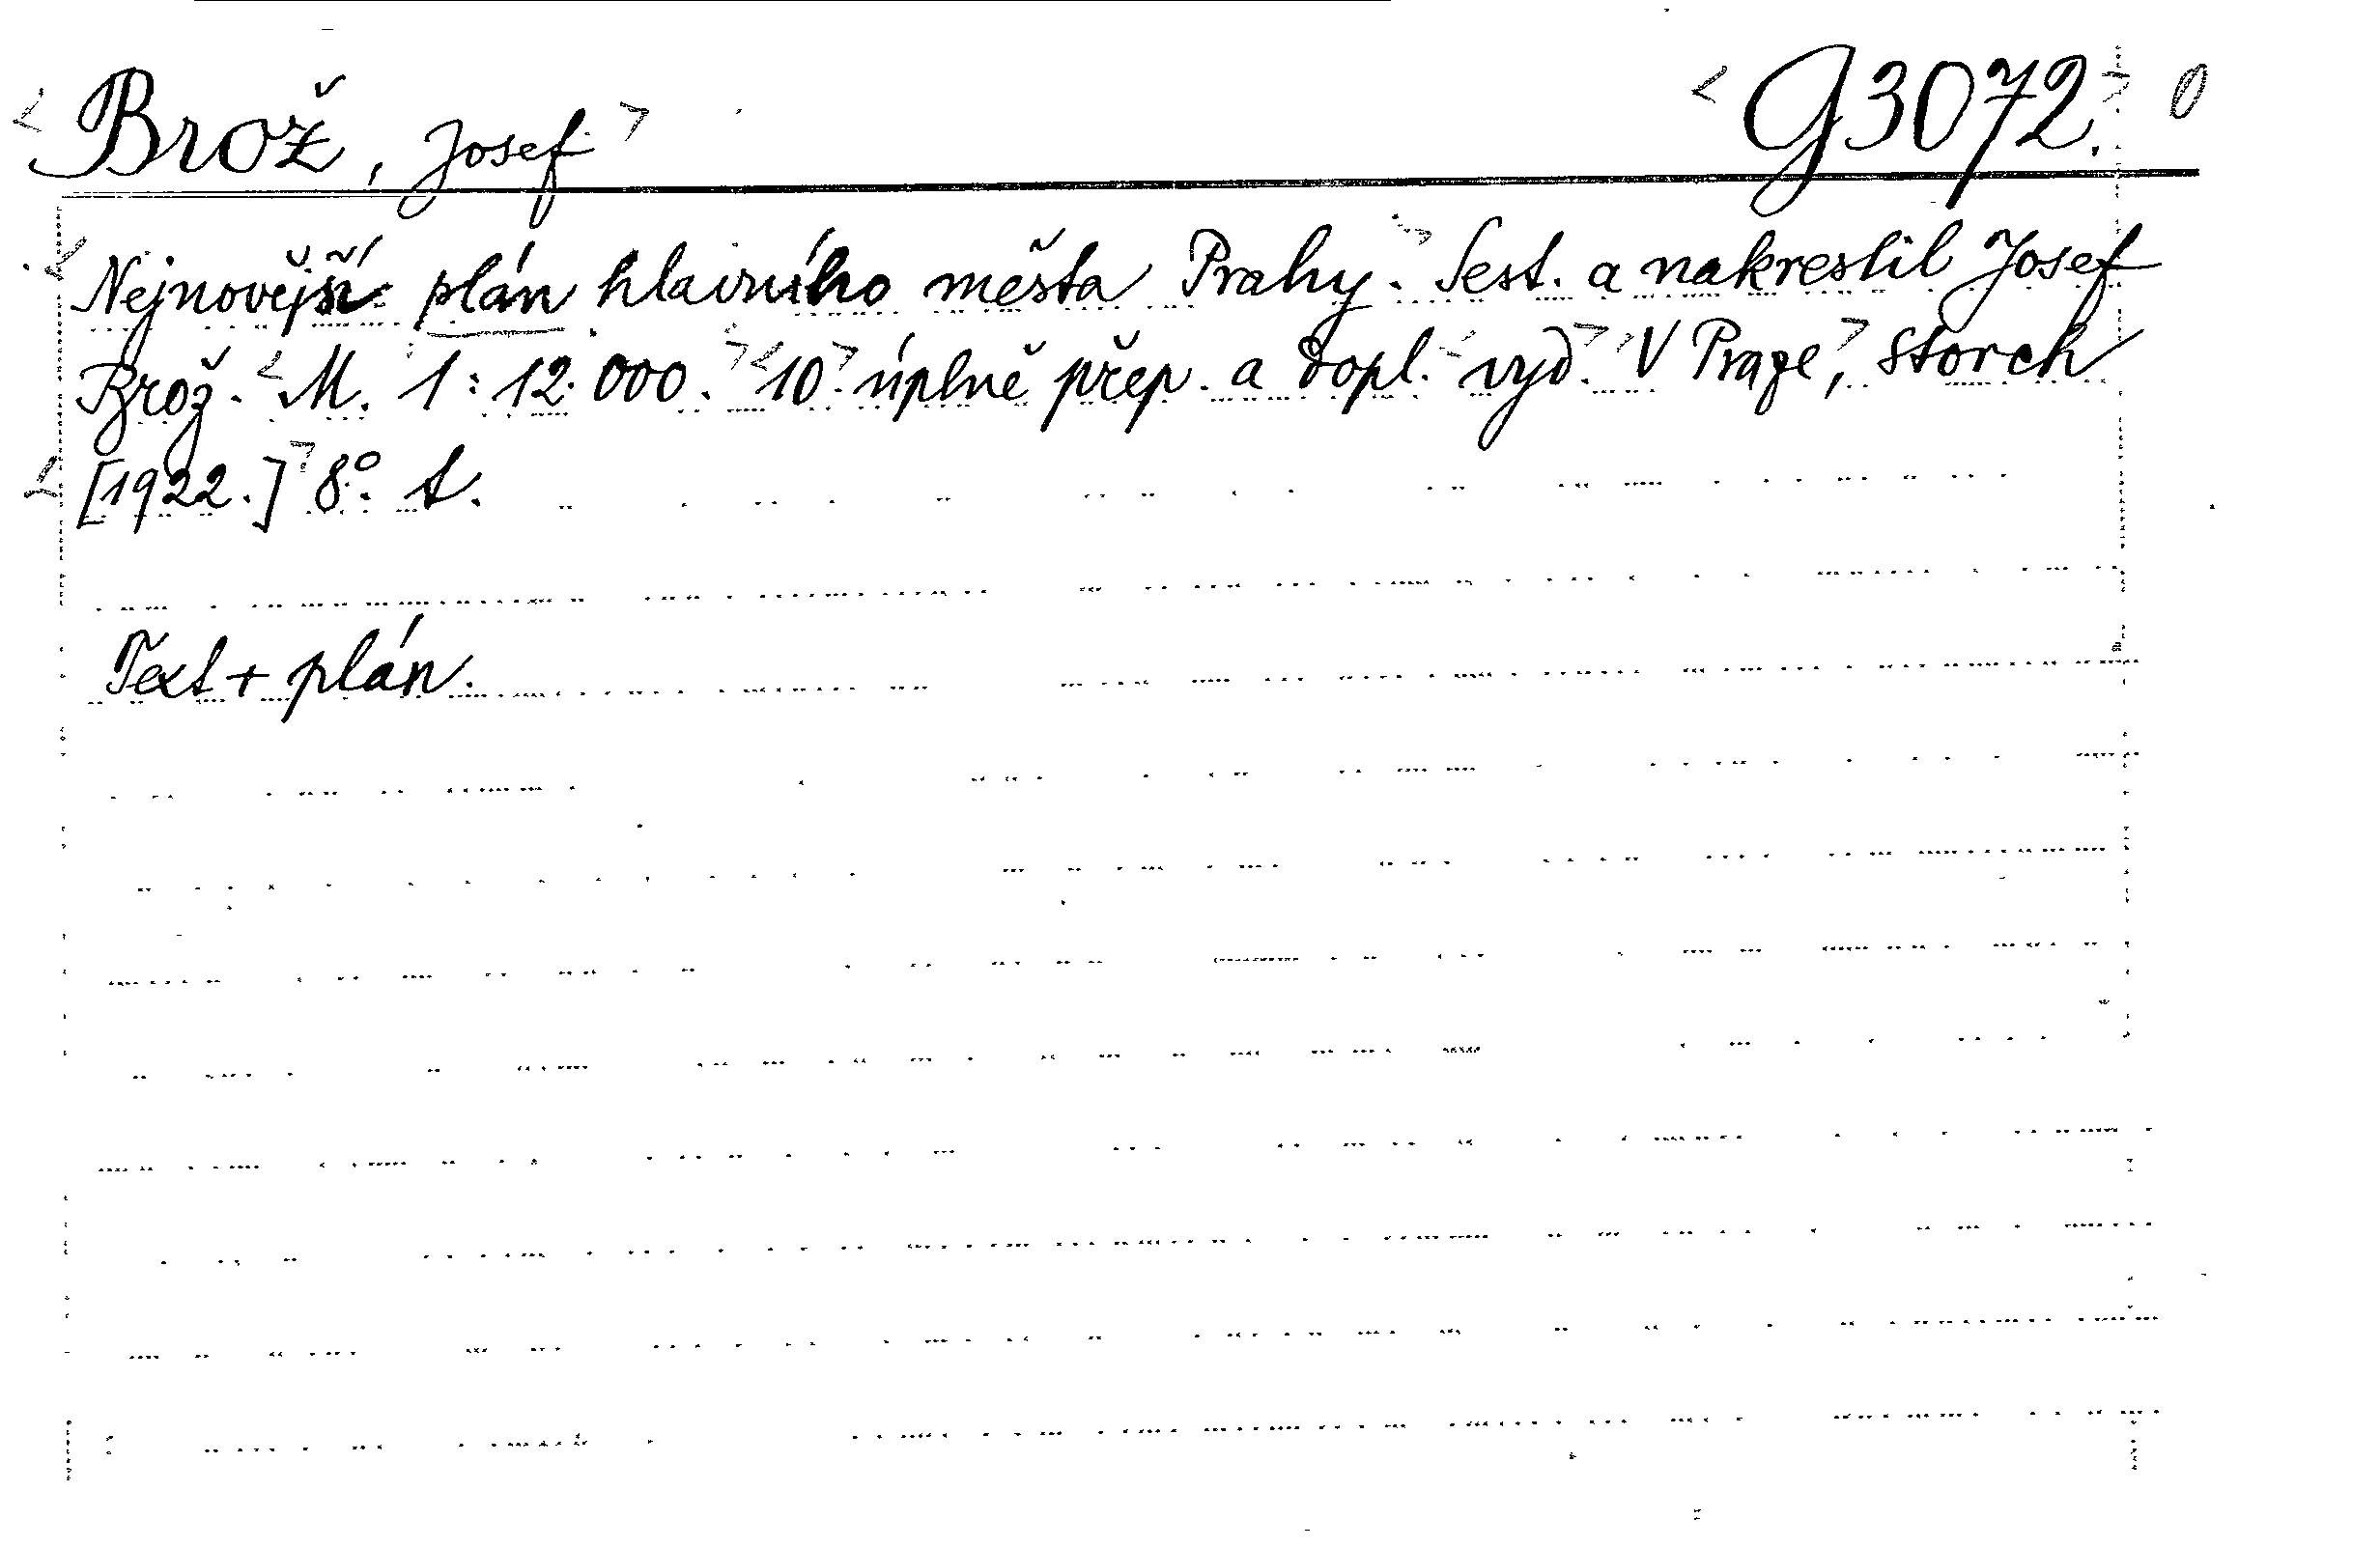 <Brož, Josef> <G3072.> 0
<Nejnovější plán hlavního města Prahy.> Sest. a nakreslil Josef
Brož. <M. 1:12.000.> <10.> úplně přep. a dopl. <vyd.> <V Praze,> Storch
<[1922.]> 8°. t.
Text + plán.